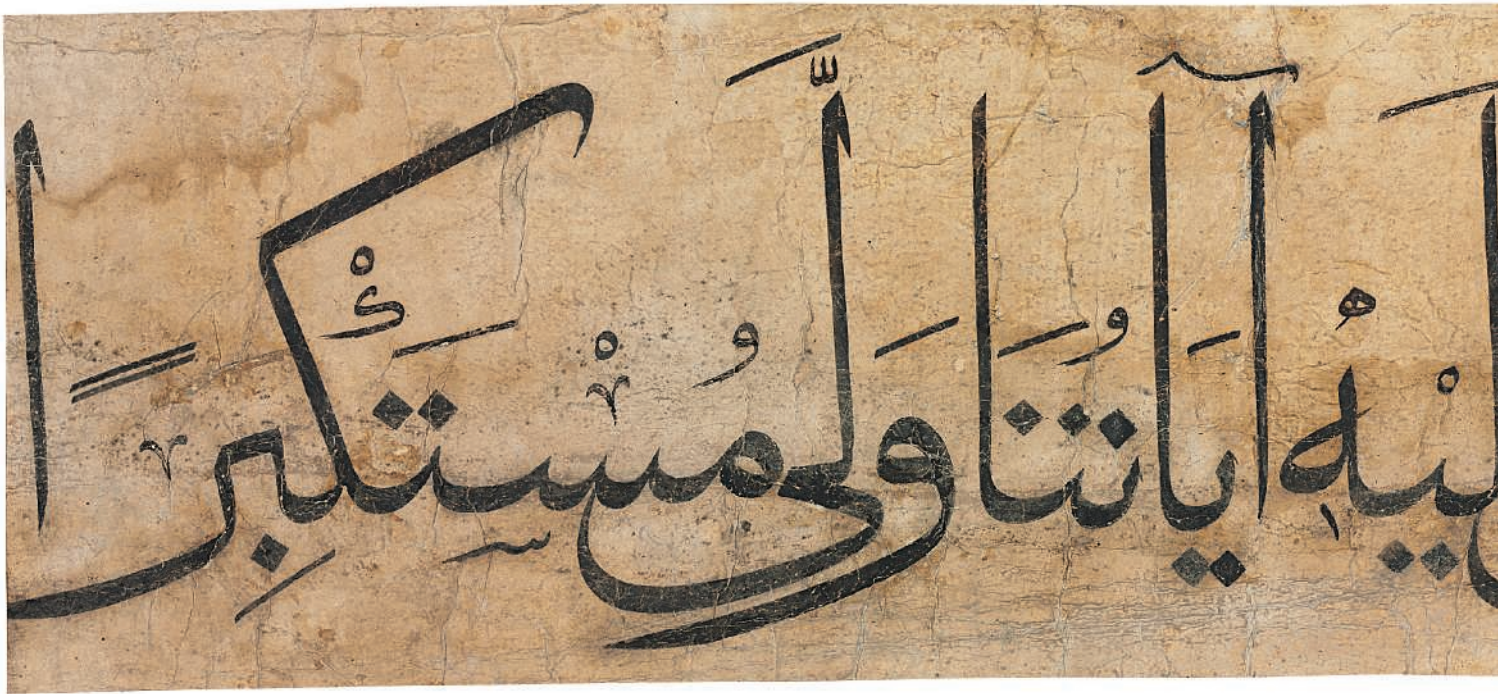 لَيْهِ آيَاتُنَا وَلَّى مُسْتَكْبِرًا